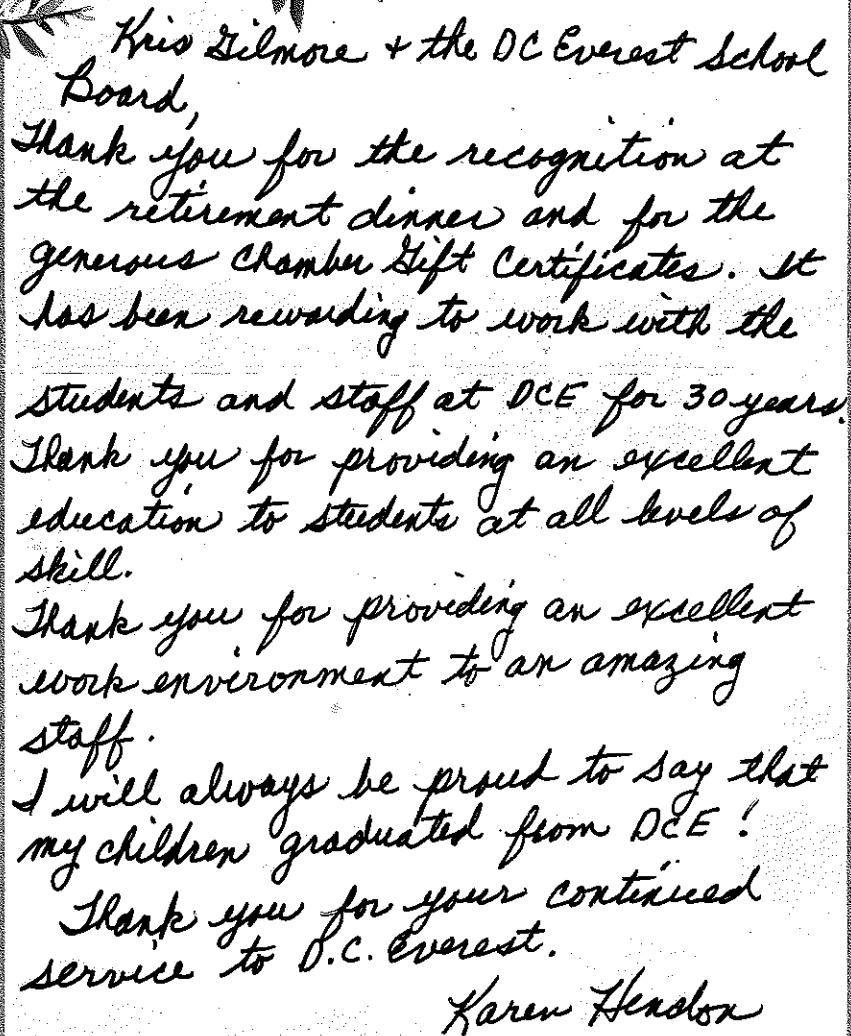 Kris Gilmore + the DC Everest School
Board,
Thank you for the recognition at
the retirement dinner and for the
generous Chamber Gift Certificates. It
has been rewarding to work with the
students and staff at DCE for 30 years.
Thank you for providing an excellent
education to students at all levels of
skill.
Thank you for providing an excellent
work environment to an amazing
staff.
I will always be proud to say that
my children graduated from DCE!
Thank you for your continued
service to D.C. Everest.
Karen Hendon